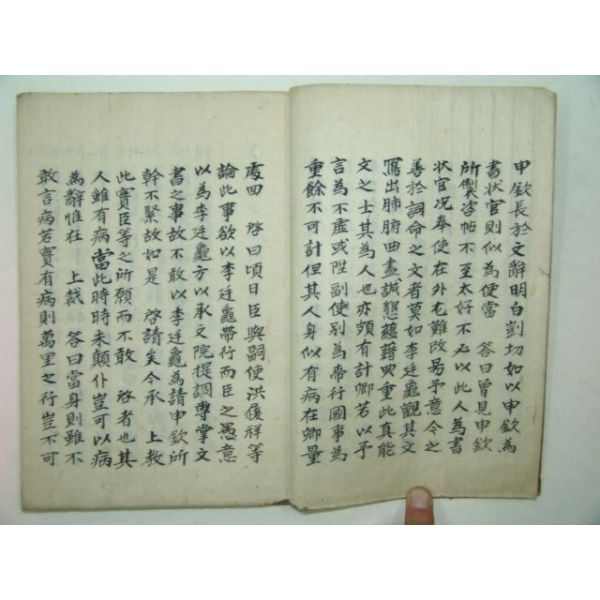 申欽長於文辭明白剴切如以申欽爲
書狀官則似爲便當 答曰曾見申欽
所製咨帖不至太好不必以此人爲書
狀官況奉使在外尤難改易予意今之
善於詞命之文者莫如李廷龜觀其文
寫出肺腑曲盡誠懇蘊藉典重此眞能
文之士其爲人也亦頗有計卿若以予
言爲不虛或陞副使別爲帶行國事爲
重餘不可計但其人身似有病在卿量
處回 啓曰頃日臣與嗣使洪履祥等
論此事欲以李廷龜帶行而臣之愚意
以爲李廷龜方以承文院提調專掌文
書之事故不敢以李廷龜爲請申欽所
幹不緊故如是 啓請矣今承 上敎
此實臣等之所願而不敢 啓者也其
人雖有病當此時時未顚仆豈可以病
爲辭惟在 上裁 答曰當身則雖不
敢言病若實有病則萬里之行豈不可